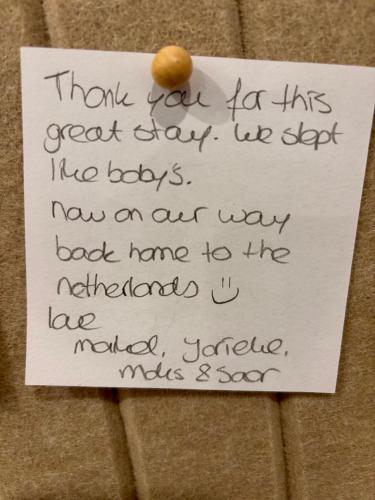 Thank you for this
great stay. We slept
like baby's.
now on our way
back home to the
netherlands
love
Maikel, Jorieke,
& Saar